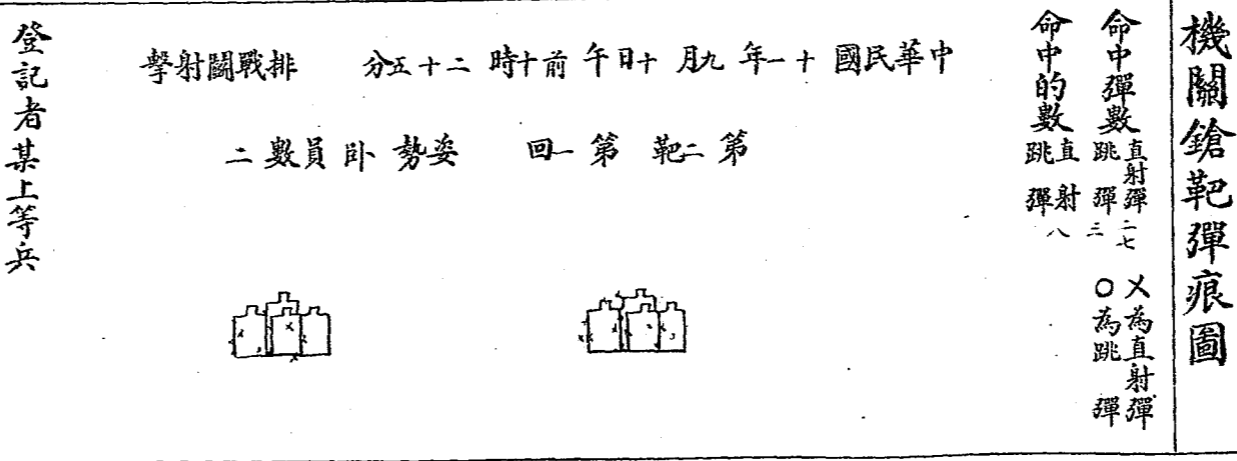 機關鎗靶彈痕圖
命中彈數 直射彈 二七
跳彈 三
X為直射彈
O為跳彈
命中的數 直射
跳彈 八
中華民國十一年九月十日午前十時二十五分 排戰鬭射擊
第二靶 第一回 姿勢臥 員數二
登記者某上等兵